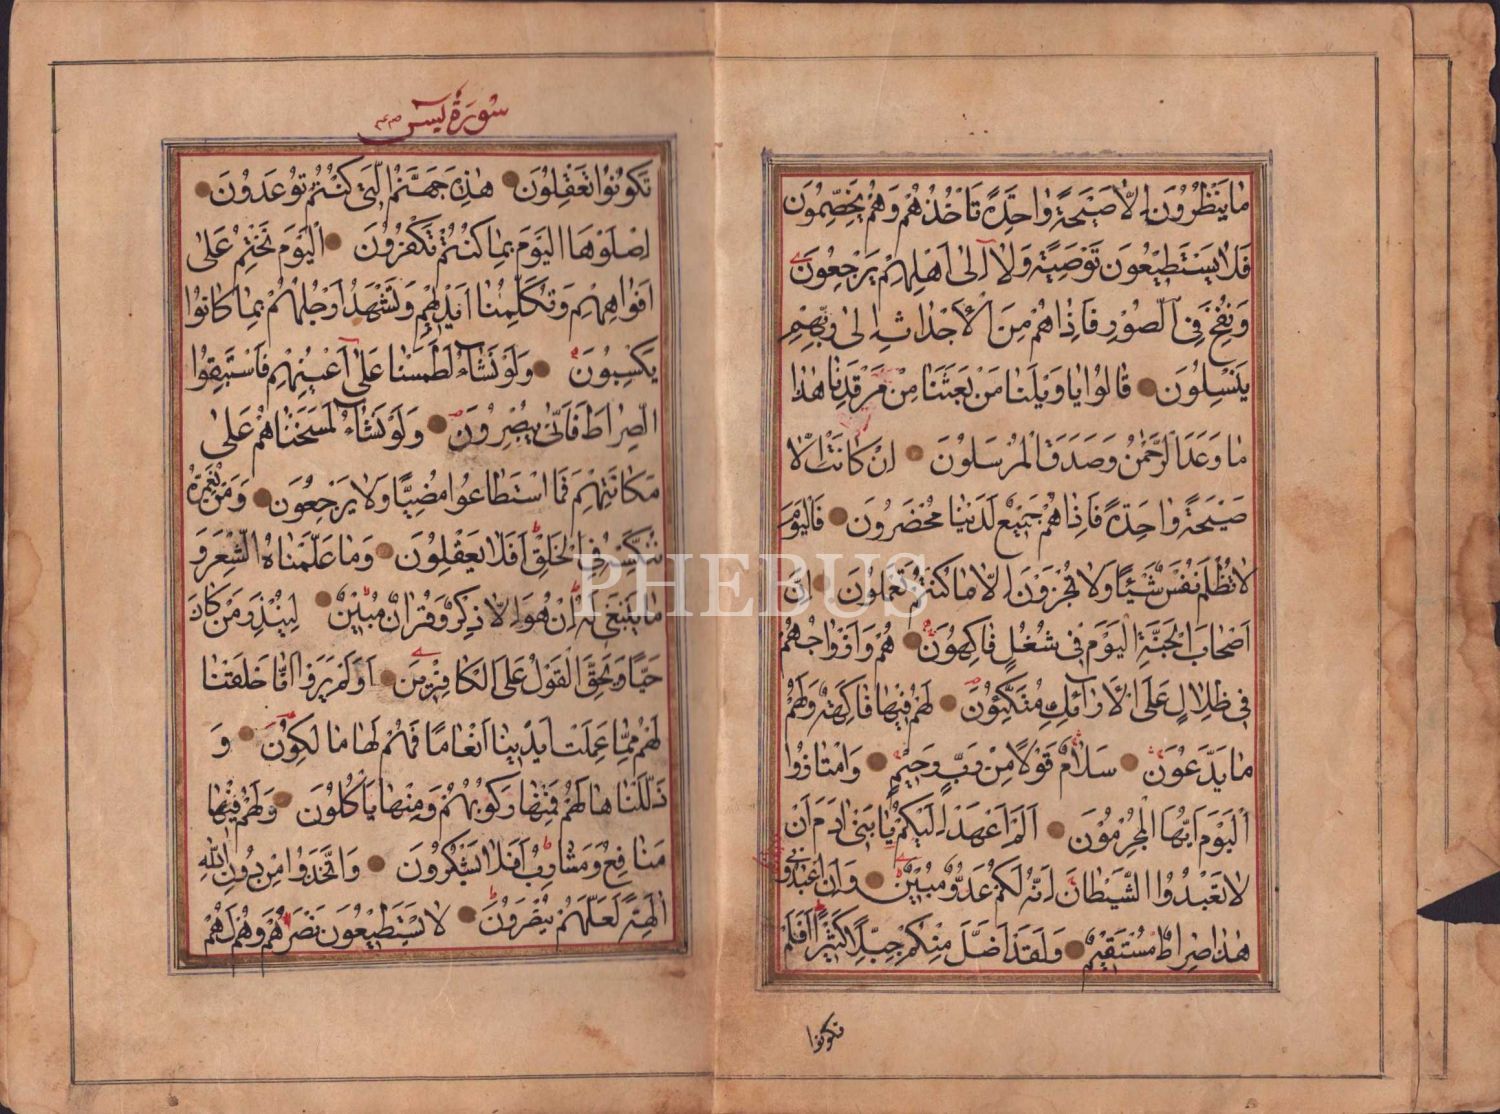 ما ينظرون الا صيحة واحدة تاخذهم وهم يخصمون
فلا يستطيعون توصية ولا الى اهلهم يرجعون
ونفخ فى الصور فاذا هم من الاجداث الى ربهم
ينسلون قالوا يا ويلنا من بعثنا من مرقدنا هذا
ما وعد الرحمن وصدق المرسلون ان كانت الا
صيحة واحدة فاذا هم جميع لدينا محضرون فاليوم
لا تظلم نفس شيئا ولا تجزون الا ما كنتم تعملون ان
اصحاب الجنة اليوم فى شغل فاكهون هم وازواجهم
فى ظلال على الارائك متكئون لهم فيها فاكهة ولهم
ما يدعون سلام قولا من رب رحيم وامتازوا
اليوم ايها المجرمون الم اعهد اليكم يا بنى ادم ان
لا تعبدوا الشيطان انه لكم عدو مبين وان اعبدونى
هذا صراط مستقيم ولقد اضل منكم جبلا كثيرا افلم
تكونوا
سورة يس
تكونوا تعقلون هذه جهنم التى كنتم توعدون
اصلوها اليوم بما كنتم تكفرون اليوم نختم على
افواههم وتكلمنا ايديهم وتشهد ارجلهم بما كانوا
يكسبون ولو نشاء لطمسنا على اعينهم فاستبقوا
الصراط فانى يبصرون ولو نشاء لمسخناهم على
مكانتهم فما استطاعوا مضيا ولا يرجعون ومن نعمره
ننكسه فى الخلق افلا يعقلون وما علمناه الشعر و
ما ينبغى له ان هو الا ذكر وقران مبين لينذر من كان
حيا ويحق القول على الكافرين اولم يروا انا خلقنا
لهم مما عملت ايدينا انعاما فهم لها مالكون و
ذللناها لهم فمنها ركوبهم ومنها ياكلون ولهم فيها
منافع ومشارب افلا يشكرون واتخذوا من دون الله
الهة لعلهم ينصرون لا يستطيعون نصرهم وهم لهم
PHEBUS